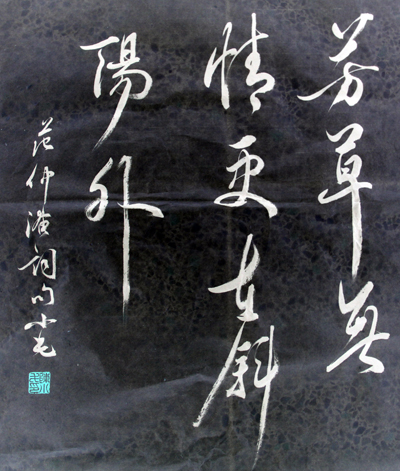 芳草無
情更在斜
陽外
范仲淹詞句小毛